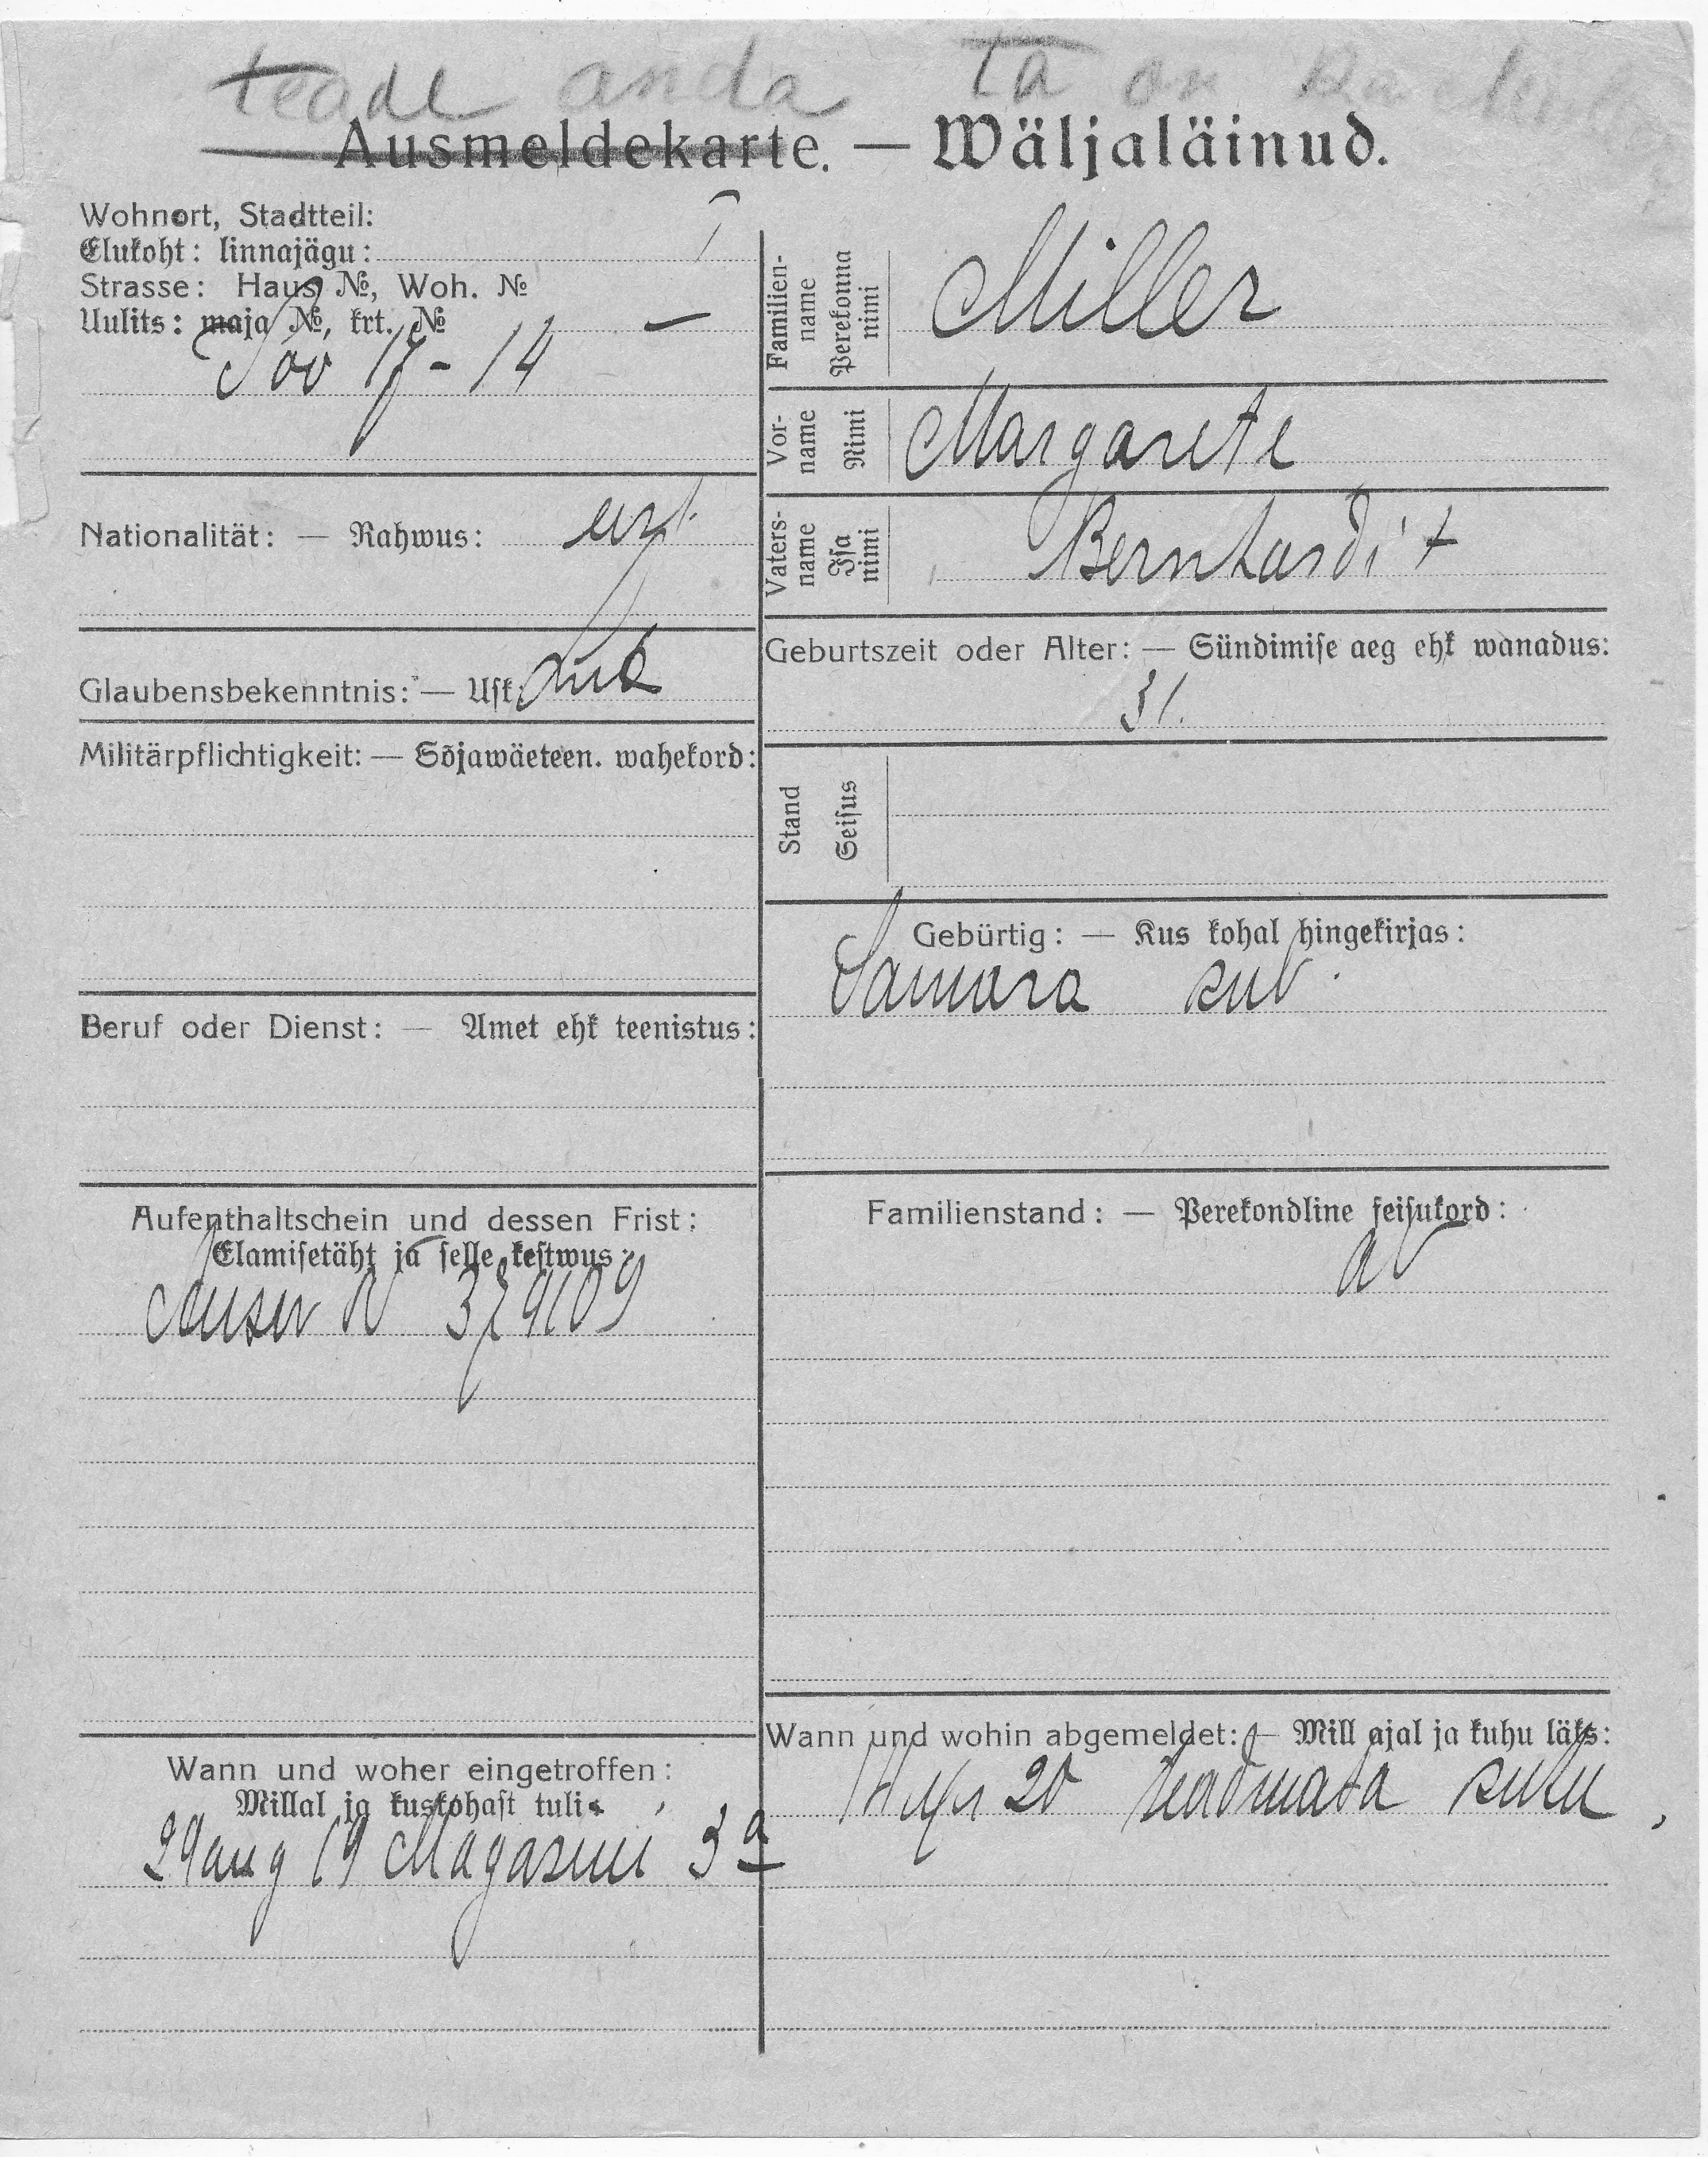 teade anda Ta on
Ausmeldekarte. — Wäljaläinud.
Wohnort, Stadtteil:
Elukoht: linnajägu:
Strasse: Haus №, Woh. №
Uulits: maja №, krt. №
Töö 17 - 14
Nationalität: — Rahwus:
Glaubensbekenntnis: — Usk:
Militärpflichtigkeit: — Sõjawäeteen. wahekord:
Beruf oder Dienst: — Amet ehk teenistus:
Aufenthaltschein und dessen Frist:
Elamisetäht ja selle kestwus:
Wann und woher eingetroffen:
Millal ja kuskohast tuli:
29 aug 19 Magasini 3 a
Familien-name Perekonna nimi
Miller
Vor-name Nimi
Margarete
Vaters-name Isa nimi
Bernhardi t
Geburtszeit oder Alter: — Sündimise aeg ehk wanadus:
31.
Stand Seisus
Gebürtig: — Kus kohal hingekirjas:
Samara kub.
Familienstand: — Perekondline seisukord:
Wann und wohin abgemeldet: — Mill ajal ja kuhu läks:
20 teadmata kuhu